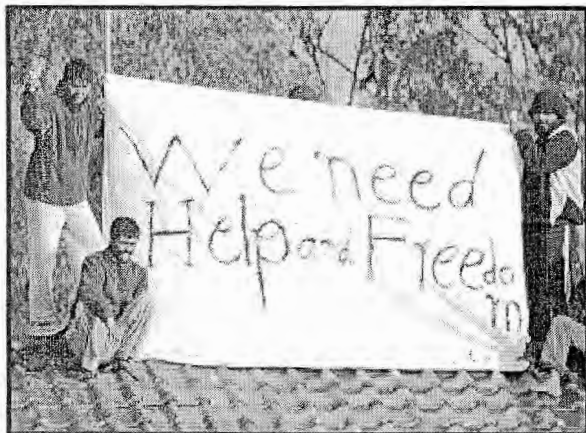 We need
Help and Freedo
m